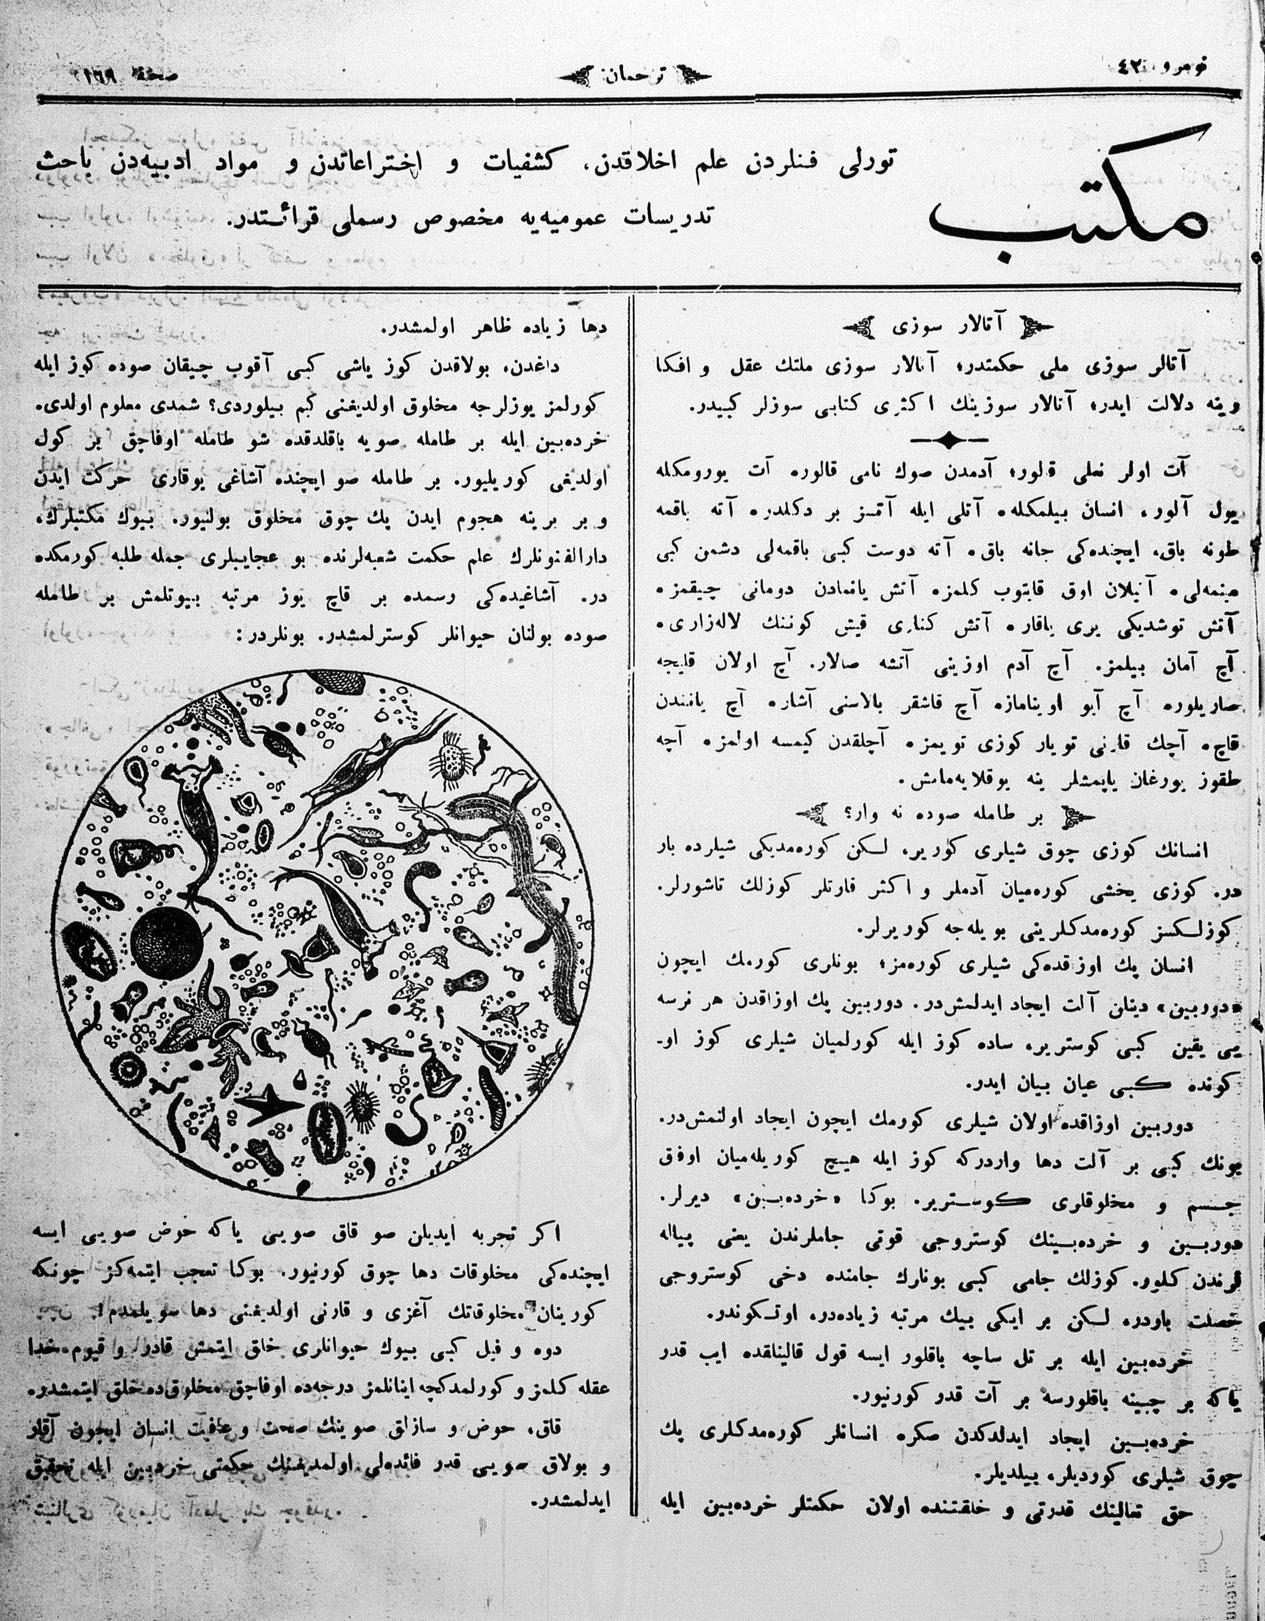 نومرو ٤٢
ترجمان
صحفه ١٦٩
مكتب
تورلی فنلردن علم اخلاقدن، كشفیات و اختراعاتدن و مواد ادبیه‌دن باحث
تدریسات عمومیه‌یه مخصوص رسملی قرائتدر.
آتالار سوزی
آتالر سوزی ملی حكمتدر؛ آتالار سوزی ملتك عقل و افكا
رینه دلالت ایدر؛ آتالار سوزینك اكثری كتابی سوزلر كبیدر.
آت اولر نعلی قالور؛ آدمدن صوك نامی قالور. آت یورومكله
یول آلور، انسان بیلمكله. آتلی ایله آتسز بر دكلدر. آته باقمه
طونه باق، ایچنده‌كی جانه باق. آته دوست كبی باقمه‌لی دشمن كبی
مینمه‌لی. آتیلان اوق قایتوب كلمز. آتش یانمادن دومانی چیقمز.
آتش توشدیكی یری یاقار. آتش كناری قیش كوننك لاله‌زاری.
آچ آمان بیلمز. آچ آدم اوزینی آتشه صالار. آچ اولان قلیجه
صاریلور. آچ آیو اوینامازه آچ قاشقر بالاسنی آشار. آچ یانندن
قاچ. آچك قارنی تویار كوزی تویمز. آچلقدن كیمسه اولمز. آچه
طقوز یورغان یاپمشلر ینه یوقلایه‌مامش.
بر طامله صوده نه وار؟
انسانك كوزی چوق شیلری كوریر، لكن كوره‌مدیكی شیلرده بار
در. كوزی یخشی كوره‌میان آدملر و اكثر قارتلر كوزلك تاشورلر.
كوزلكسز كوره‌مدكلرینی بویله‌جه كوریرلر.
انسان پك اوزقده‌كی شیلری كوره‌مز؛ بونلری كورمك ایچون
«دوربین» دینان آلت ایجاد ایدلمش‌در. دوربین پك اوزاقدن هر نرسه
یی یقین كبی كوستریر، ساده كوز ایله كورلمیان شیلری كوز او-
كونده كبی عیان بیان ایدر.
دوربین اوزاقده اولان شیلری كورمك ایچون ایجاد اولنمش‌در.
بونك كبی بر آلت دها واردركه كوز ایله هیچ كوریله‌میان اوفق
جسم و مخلوقلری كوستریر. بوكا «خرده‌بین» دیرلر.
دوربین و خرده‌بینك كوستروجی قوتی جاملرندن یعنی پیاله
لرندن كلور. كوزلك جامی كبی بونلرك جامنده دخی كوستروجی
خصلت باردر. لكن بر ایكی بیك مرتبه زیاده‌در، اوتكوندر.
خرده‌بین ایله بر تل ساچه باقلور ایسه قول قالینلقده ایب قدر
یاكه بر چبینه باقلورسه بر آت قدر كورنیور.
خرده‌بین ایجاد ایدلدكدن صكره انسانلر كوره‌مدكلری پك
چوق شیلری كوردیلر، بیلدیلر.
حق تعالینك قدرتی و خلقتنده اولان حكمتلر خرده‌بین ایله
دها زیاده ظاهر اولمشدر.
داغدن، بولاقدن كوز یاشی كبی آقوب چیقان صوده كوز ایله
كورلمز یوزلرجه مخلوق اولدیغنی كم بیلوردی؟ شمدی معلوم اولدی.
خرده‌بین ایله بر طامله صویه باقلدقده شو طامله اوفاجق بر كول
اولدیغی كوریلیور. بر طامله صو ایچنده آشاغی یوقاری حركت ایدن
و بر برینه هجوم ایدن پك چوق مخلوق بولنیور. بیوك مكتبلرك،
دارالفنونلرك علم حكمت شعبه‌لرنده بو عجایبلری جمله طلبه كورمكده
در. آشاغیده‌كی رسمده بر قاچ یوز مرتبه بیوتلمش بر طامله
صوده بولنان حیوانلر كوسترلمشدر. بونلردر:
اكر تجربه ایدیلان صو قاق صویی یاكه حوض صویی ایسه
ایچنده‌كی مخلوقات دها چوق كورنیور. بوكا تعجب ایتمه‌كز چونكه
كورینان مخلوقاتك آغزی و قارنی اولدیغنی دها سویلمدم!
دوه و فیل كبی بیوك حیوانلری خلق ایتمش قادر و قیوم خدا
عقله كلمز و كورلمدكچه اینانلمز درجه‌ده اوفاچق مخلوق‌ده خلق ایتمشدر.
قاق، حوض و سازلق صوینك صحت و عافیت انسان ایچون آقار
و بولاق صویی قدر فائده‌لی اولمدیغنك حكمتی خرده‌بین ایله تحقیق
ایدلمشدر.